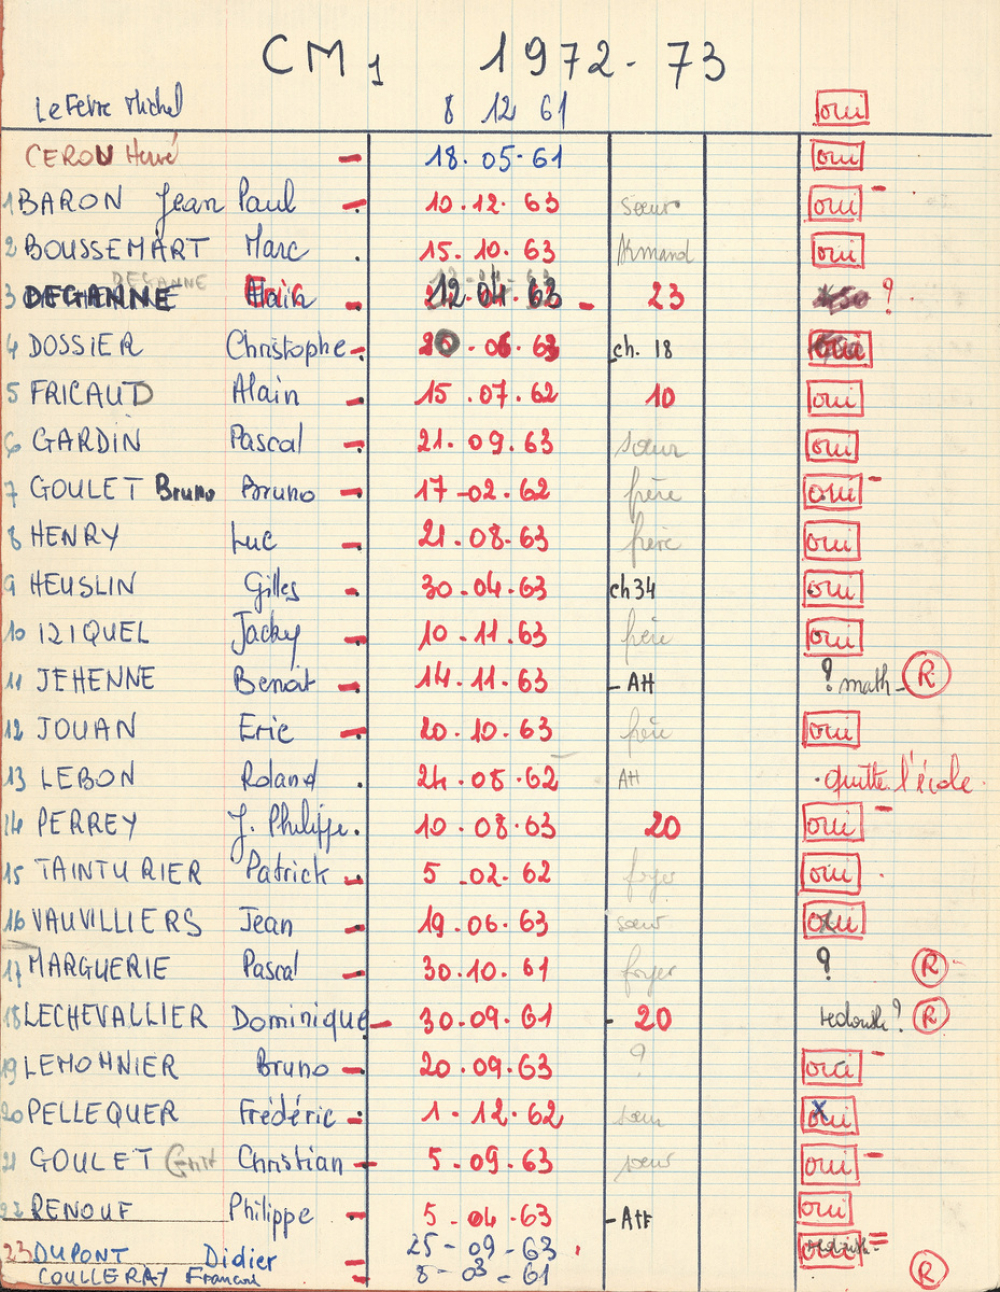 CM1 1972-73
Le Febvre Michel 8 12 61 oui
CEROU Hervé - 18.05.61 oui
1 BARON Jean Paul - 10.12.63 soeur oui -
2 BOUSSEMART Marc . 15.10.63 Armand oui
DEGANNE
3 DEGANNE Alain 12.04.63 - 23 ?
4 DOSSIER Christophe - 20.06.63 ch. 18 oui
5 FRICAUD Alain - 15.07.62 10 oui
6 GARDIN Pascal - 21.09.63 soeur oui
7 GOULET Bruno Bruno - 17-02.62 frère oui -
8 HENRY Luc - 21.08.63 frère oui
9 HEUSLIN Gilles - 30.04.63 ch 34 oui
10 IZIQUEL Jacky - 10.11.63 frère oui
11 JEHENNE Benoit - 14.11.63 - AH ? math - R
12 JOUAN Eric - 20.10.63 frère oui
13 LEBON Roland . 24.05.62 AH . quitte l'école.
14 PERREY J. Philippe . 10.08.63 20 oui -
15 TAINTURIER Patrick - 5.02.62 foyer oui .
16 VAUVILLIERS Jean - 19.06.63 soeur oui
17 MARGUERIE Pascal - 30.10.61 foyer ? R -
18 LECHEVALLIER Dominique - 30.09.61 - 20 redouble ? R
19 LEMONNIER Bruno - 20.09.63 ? oui -
20 PELLEQUER Frédéric - 1.12.62 soeur oui x
21 GOULET Christian - 5.09.63 soeur oui -
22 RENOUF Philippe - 5-04-63 - AH oui
23 DUPONT Didier - 25-09-63 oui =
COULLERAY - 8-03-61 R